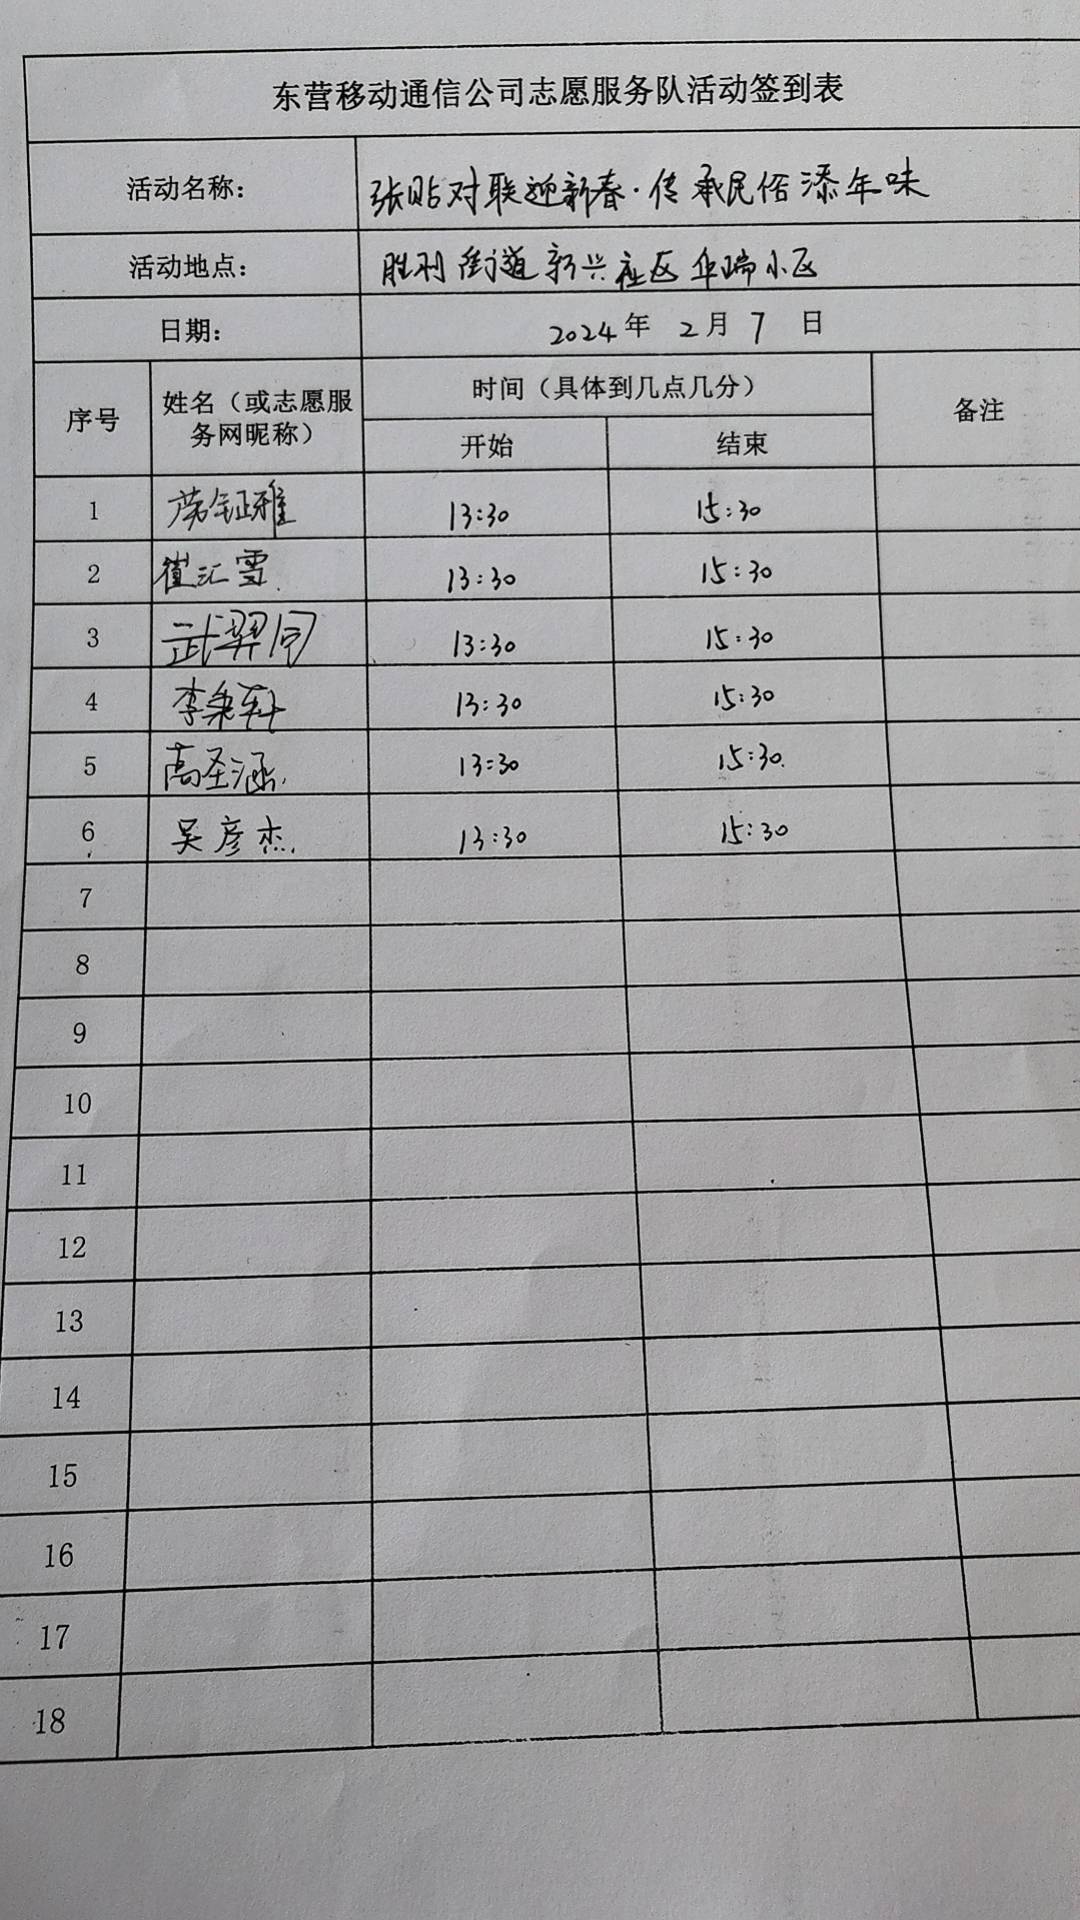 东营移动通信公司志愿服务队活动签到表
活动名称： 张贴对联迎新春·传承民俗添年味
活动地点： 胜利街道新兴社区华瑞小区
日期： 2024年 2月 7 日
序号 姓名（或志愿服务网昵称） 时间（具体到几点几分） 备注
开始 结束
1 13:30 15:30
2 崔汇雪 13:30 15:30
3 武羿同 13:30 15:30
4 李秉轩 13:30 15:30
5 高圣涵 13:30 15:30
6 吴彦杰 13:30 15:30
7
8
9
10
11
12
13
14
15
16
17
18